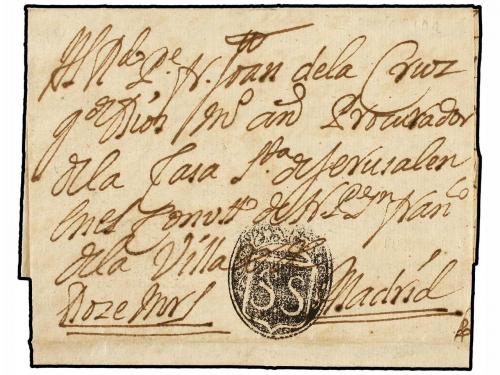 Al Rdo Pe N. Joan de la Cruz
q de Dios ms ans Procurador
de la Casa Sta de Jerusalen
en el Convto de N. Pe Sn Franco
de la Villa de
Doze Mrs Madrid
DS